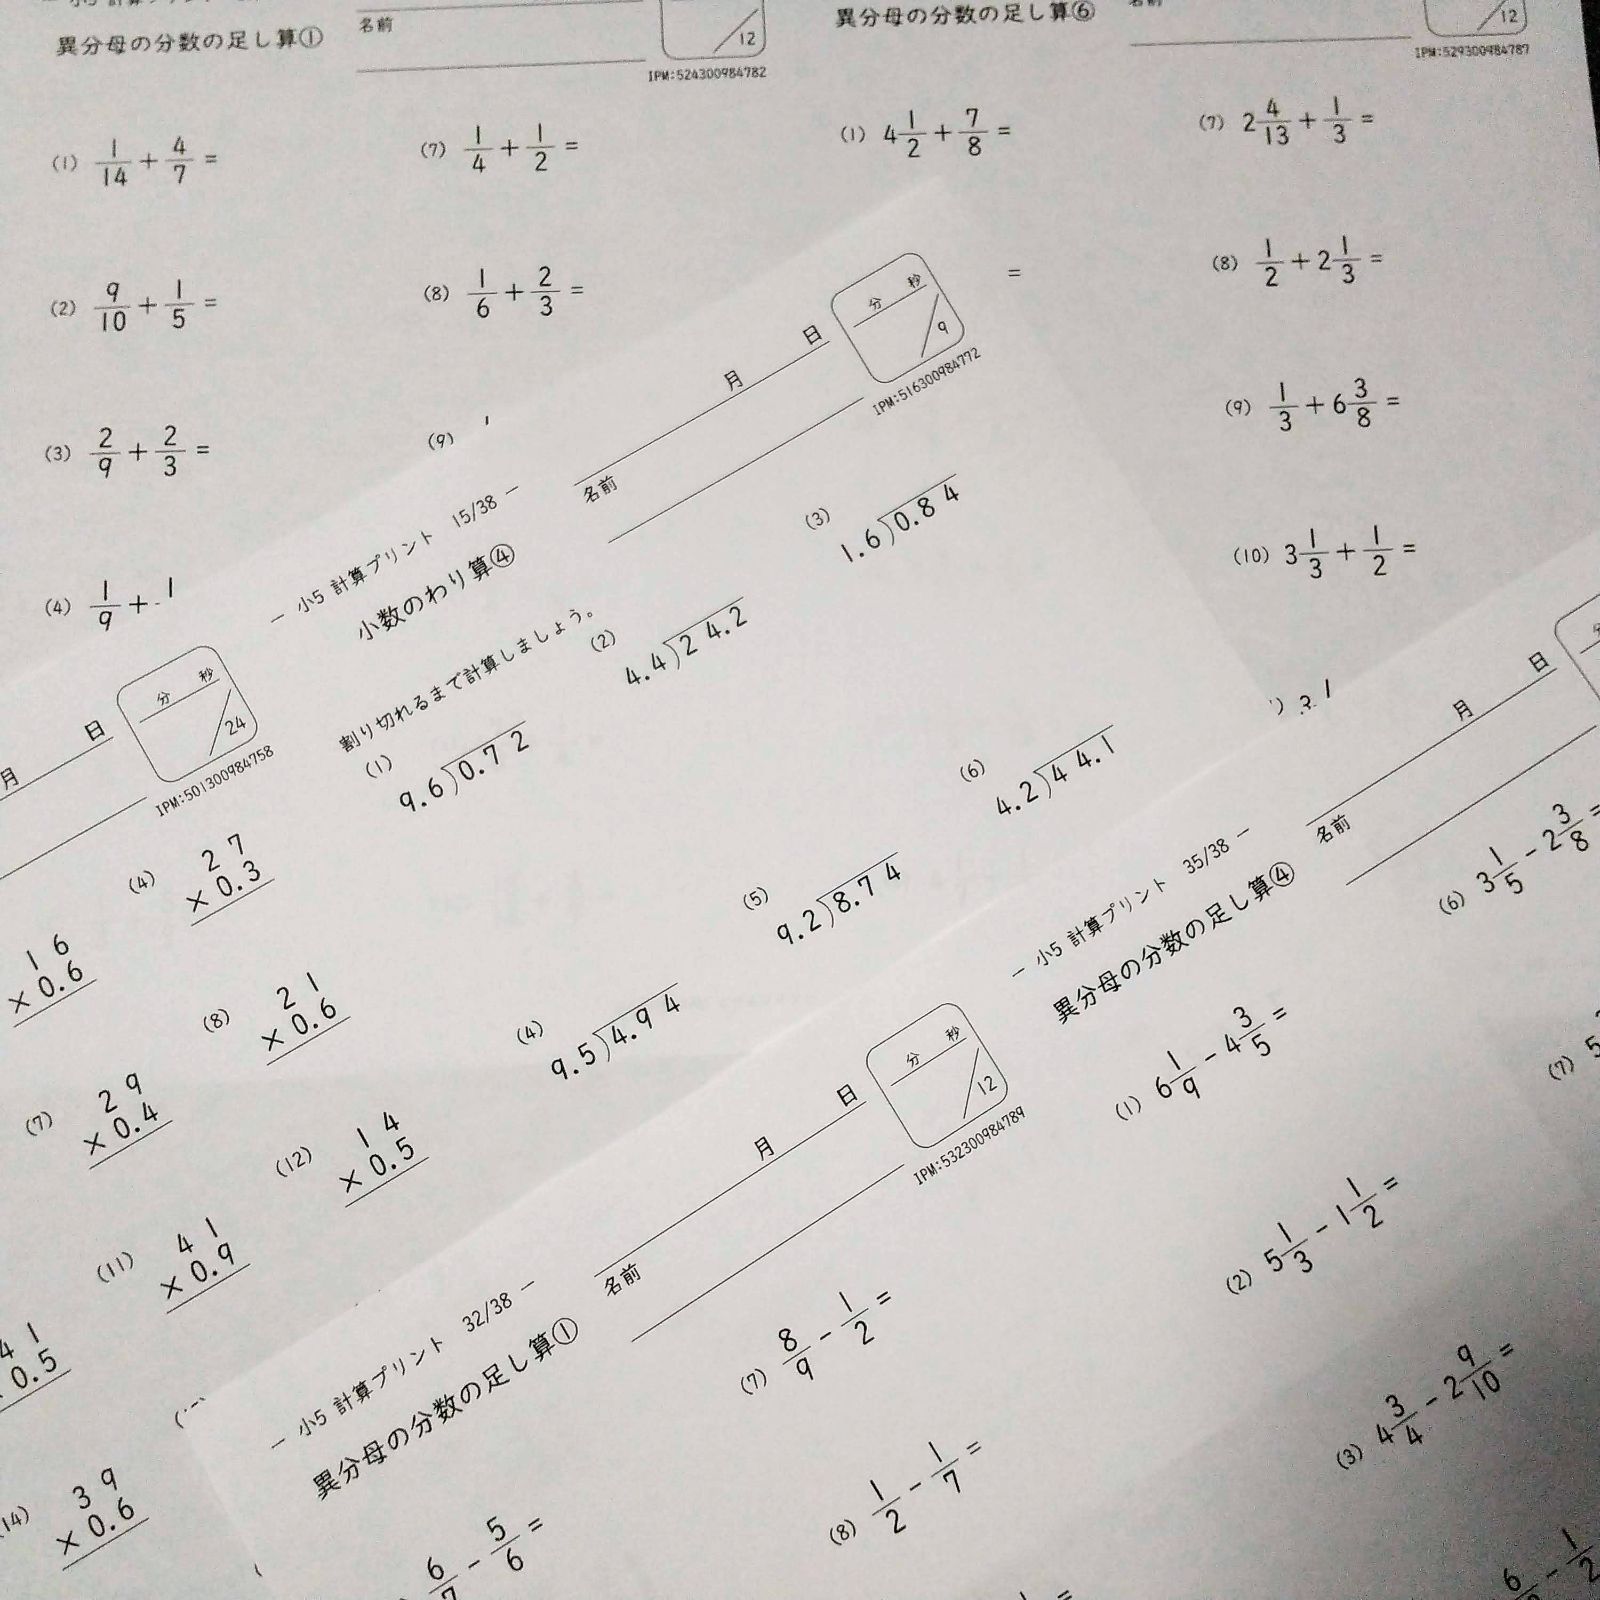 異分母の分数の足し算①
名前
/12
IPM:524300984782
(1) 1/14 + 4/7 =
(7) 1/4 + 1/2 =
(2) 9/10 + 1/5 =
(8) 1/6 + 2/3 =
(3) 2/9 + 2/3 =
(9)
(4) 1/9 +
異分母の分数の足し算⑥
/12
IPM:529300984787
(1) 4 1/2 + 7/8 =
(7) 2 4/13 + 1/3 =
=
(8) 1/2 + 2 1/3 =
(9) 1/3 + 6 3/8 =
(10) 3 1/3 + 1/2 =
― 小5 計算プリント 15/38 ―
月 日
分 秒
/9
小数のわり算④
名前
IPM:516300984772
割り切れるまで計算しましょう。
(1) 9.6)0.72
(2) 4.4)24.2
(3) 1.6)0.84
(4) 9.5)4.94
(5) 9.2)8.74
(6) 4.2)44.1
月 日
分 秒
/24
IPM:501300984758
16
×0.6
(4) 27
×0.3
(7) 29
×0.4
(8) 21
×0.6
(11) 41
×0.9
(12) 14
×0.5
41
0.5
(14) 39
×0.6
― 小5 計算プリント 32/38 ―
月 日
分 秒
/12
異分母の分数の足し算①
名前
IPM:532300984789
6/7 - 5/6 =
(7) 8/9 - 1/2 =
(8) 1/2 - 1/7 =
― 小5 計算プリント 35/38 ―
月 日
異分母の分数の足し算④
名前
(1) 6 1/9 - 4 3/5 =
(6) 3 1/5 - 2 3/8 =
(2) 5 1/3 - 1 1/2 =
(7) 5
(3) 4 3/4 - 2 9/10 =